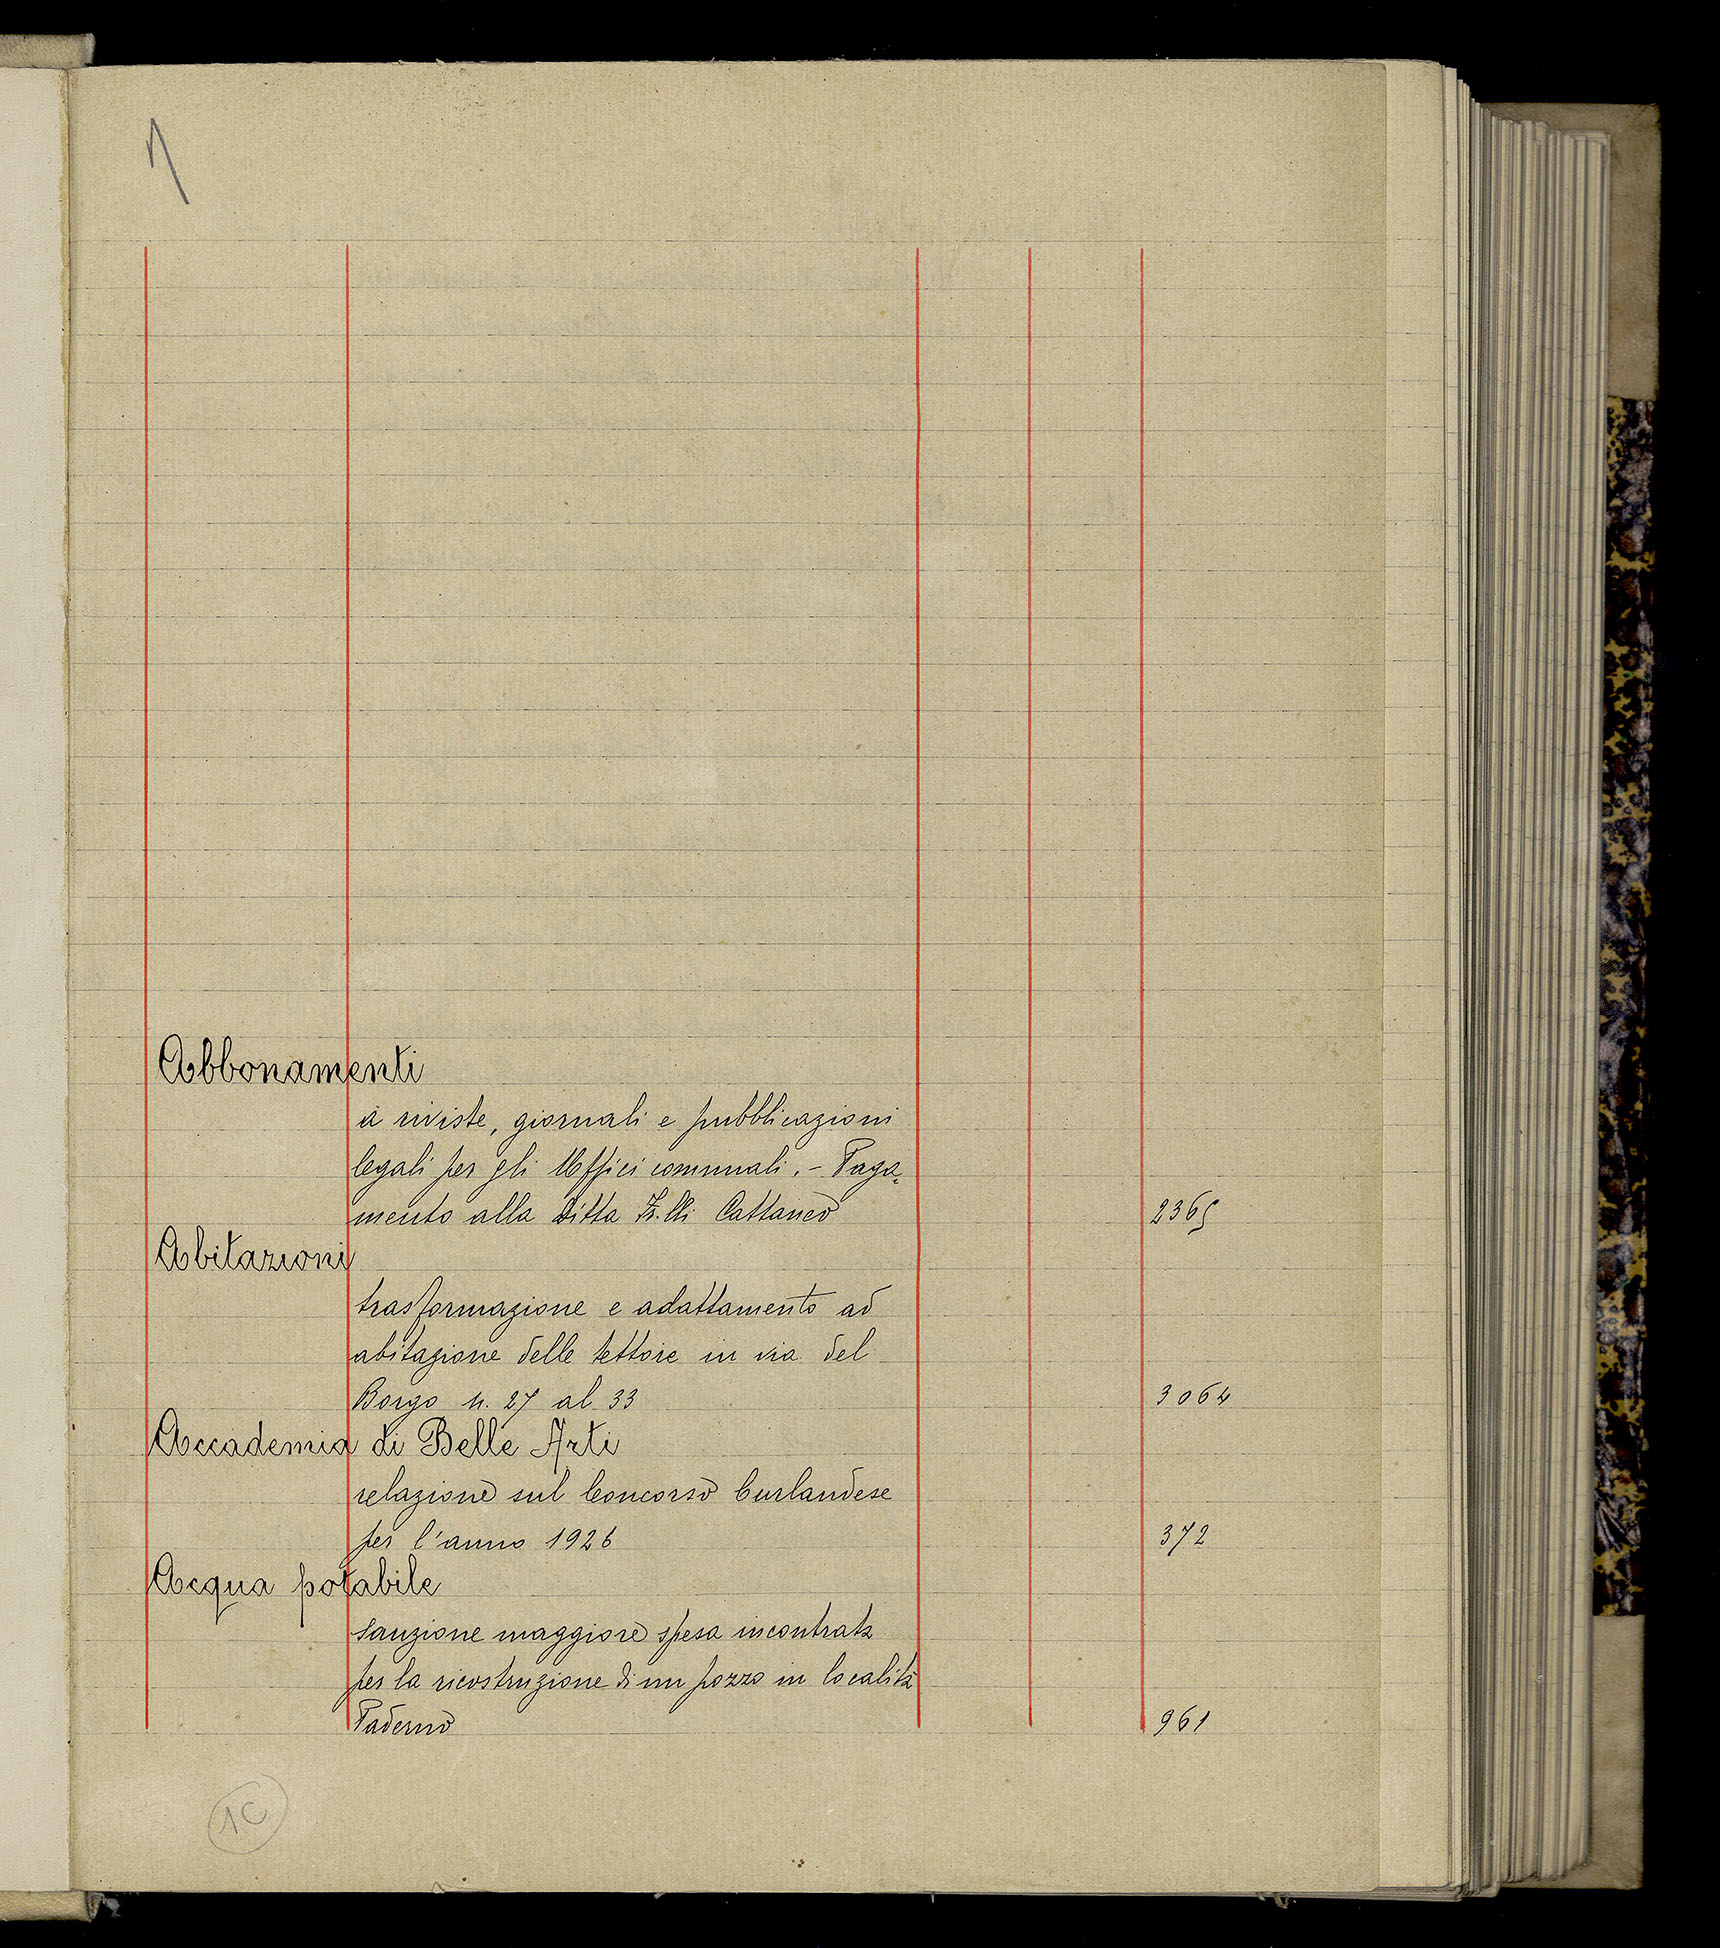 1
Abbonamenti
a riviste, giornali e pubblicazioni
legali per gli Uffici comunali. - Paga=
mento alla Ditta F.lli Cattaneo 2365
Abitazioni
trasformazione e adattamento ad
abitazione delle tettoie in via del
Borgo n. 27 al 33 3064
Accademia di Belle Arti
relazione sul Concorso Curlandese
per l'anno 1926 372
Acqua potabile
Sanzione maggiore spesa incontrata
per la ricostruzione di un pozzo in località
Paderno 961
1C